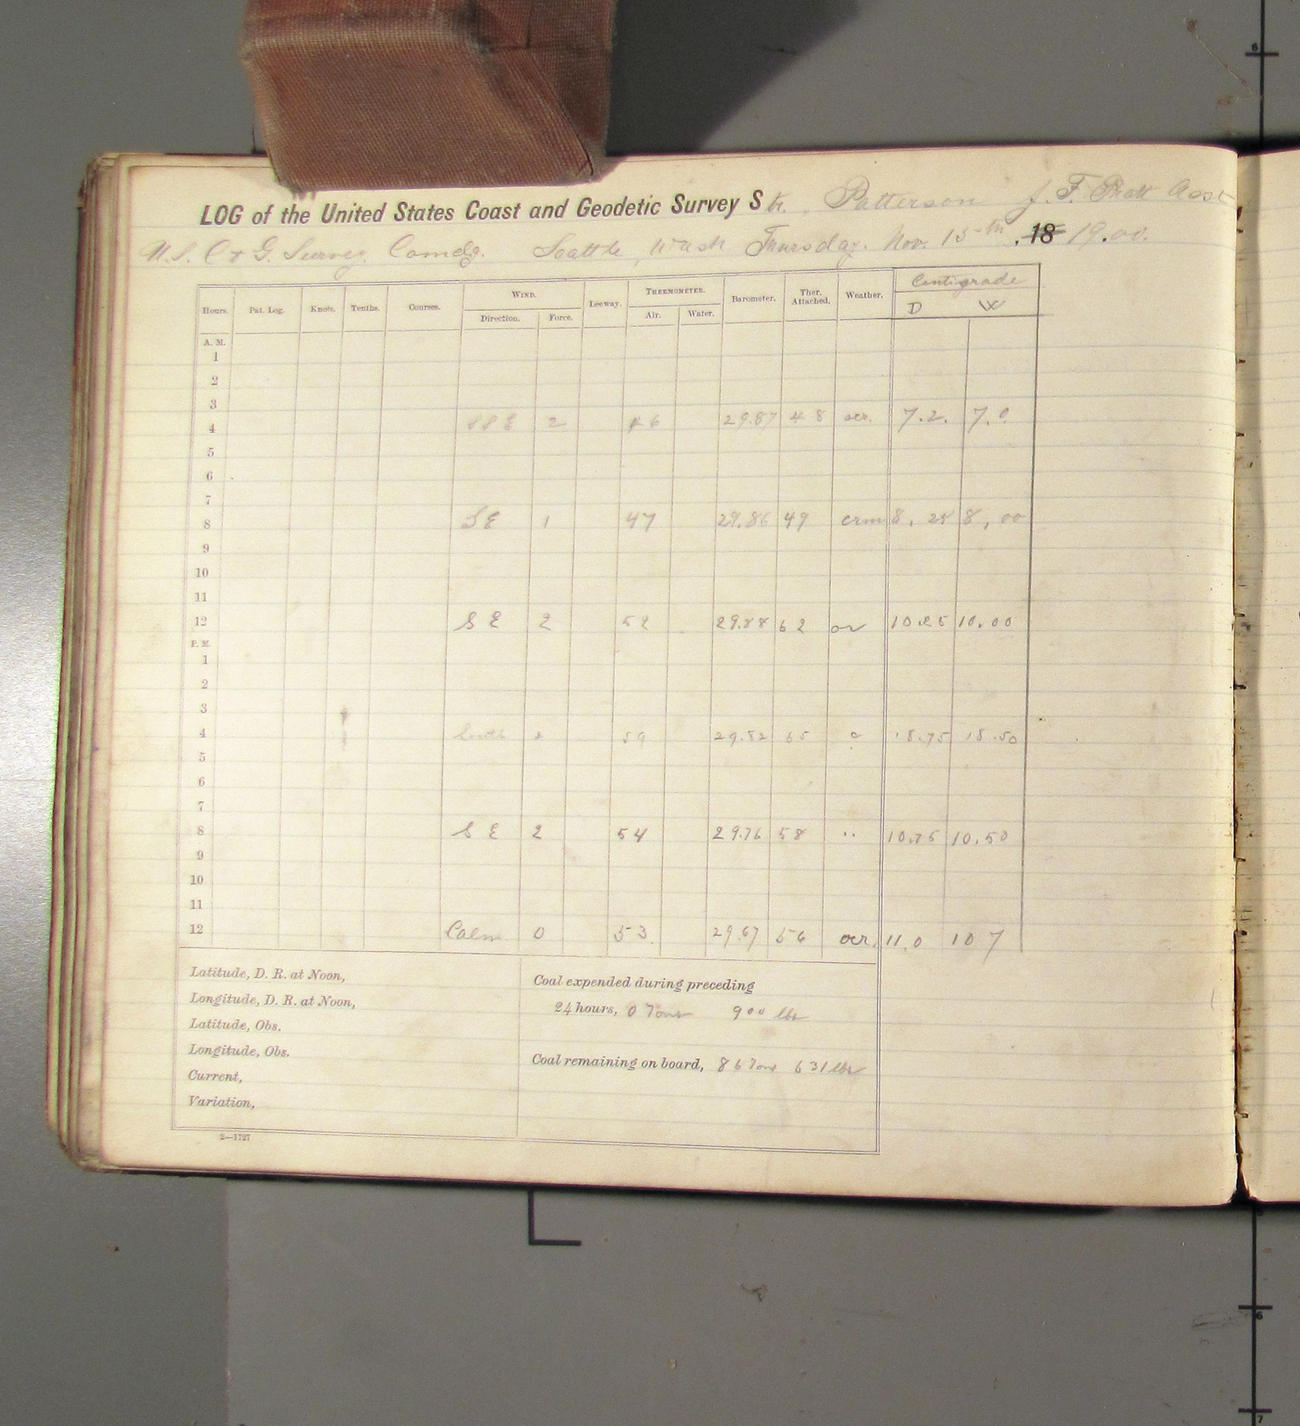 LOG of the United States Coast and Geodetic Survey Str. Patterson J. F. Pratt Asst
U.S. C & G. Survey, Comdg. Seattle, Wash Thursday, Nov. 15th, 18 1900.
Hours. Pat. Log. Knots. Tenths. Courses. WIND. Leeway. THERMOMETER. Barometer. Ther. Attached. Weather. Centigrade
Direction. Force. Air. Water. D W
A. M.
1
2
3
4 SSE 2 46 29.87 48 ocr. 7.2. 7.0
5
6
7
8 SE 1 47 29.86 49 8.25 8.00
9
10
11
12 SE 2 52 29.88 62 10.25 10.00
P. M.
1
2
3
4 South 2 59 29.82 65 15.75 15.50
5
6
7
8 SE 2 54 29.76 58 " 10.75 10.50
9
10
11
12 Calm 0 53 29.67 56 ocr. 11.0 10 7
Latitude, D. R. at Noon,
Longitude, D. R. at Noon,
Latitude, Obs.
Longitude, Obs.
Current,
Variation,
Coal expended during preceding
24 hours, 0 Tons 900 lbs
Coal remaining on board, 86 Tons 631 lbs
2—1727
6
6
7